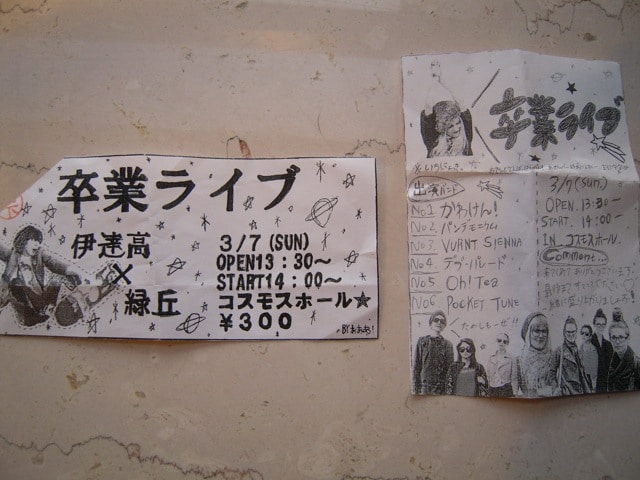 卒業ライブ
伊達高
×
緑丘
3/7(SUN)
OPEN13:30～
START14:00～
コスモスホール☆
¥300
卒業ライブ
出演バンド
No1 かわけん!
No2 パンデモニウム
No3 VURNT SIENNA
No4 デブ・パレード
No5 Oh! Tea
No6 POCKET TUNE
3/7(sun)
OPEN. 13:30～
START. 14:00～
IN コスモスホール.
Comment...
たのしもーぜ!!